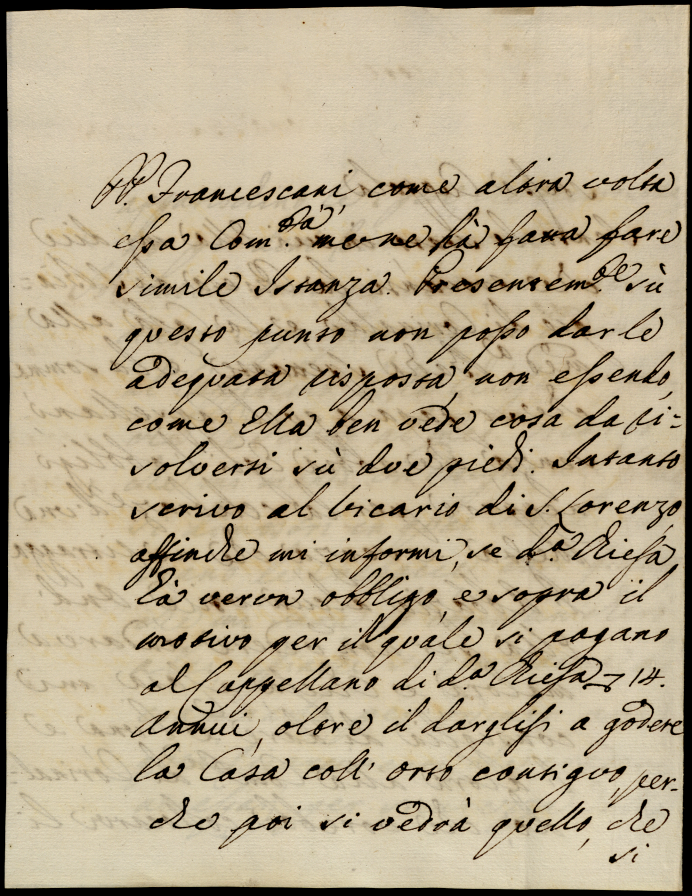 PP. Francescani come altra volta
essa Com.tà me ne hà fatta fare
simile Istanza. Presentem.te sù
questo punto non posso darle
adeguata risposta, non essendo,
come Ella ben vede cosa da ri=
solversi sù due piedi. Intanto
scrivo al Vicario di S. Lorenzo,
affinche mi informi, se d.a Chiesa
hà verun obbligo, e sopra il
motivo per il quale si pagano
al Cappellano di d.a Chiesa 14.
Annui, oltre il darglisi a godere
la Casa coll' orto contiguo, per-
che poi si vedrà quello, che
si